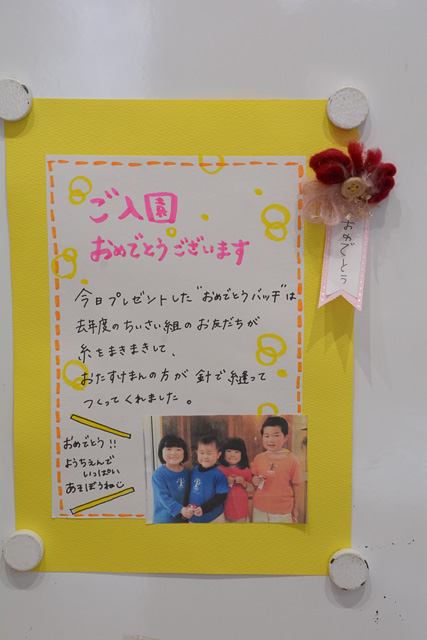 ご入園
おめでとうございます
今日プレゼントした"おめでとうバッヂ"は
去年度のちいさい組のお友だちが
糸をまきまきして、
おたすけまんの方が針で縫って
つくってくれました。
おめでとう!!
ようちえんで
いっぱい
あそぼうね
おめでとう